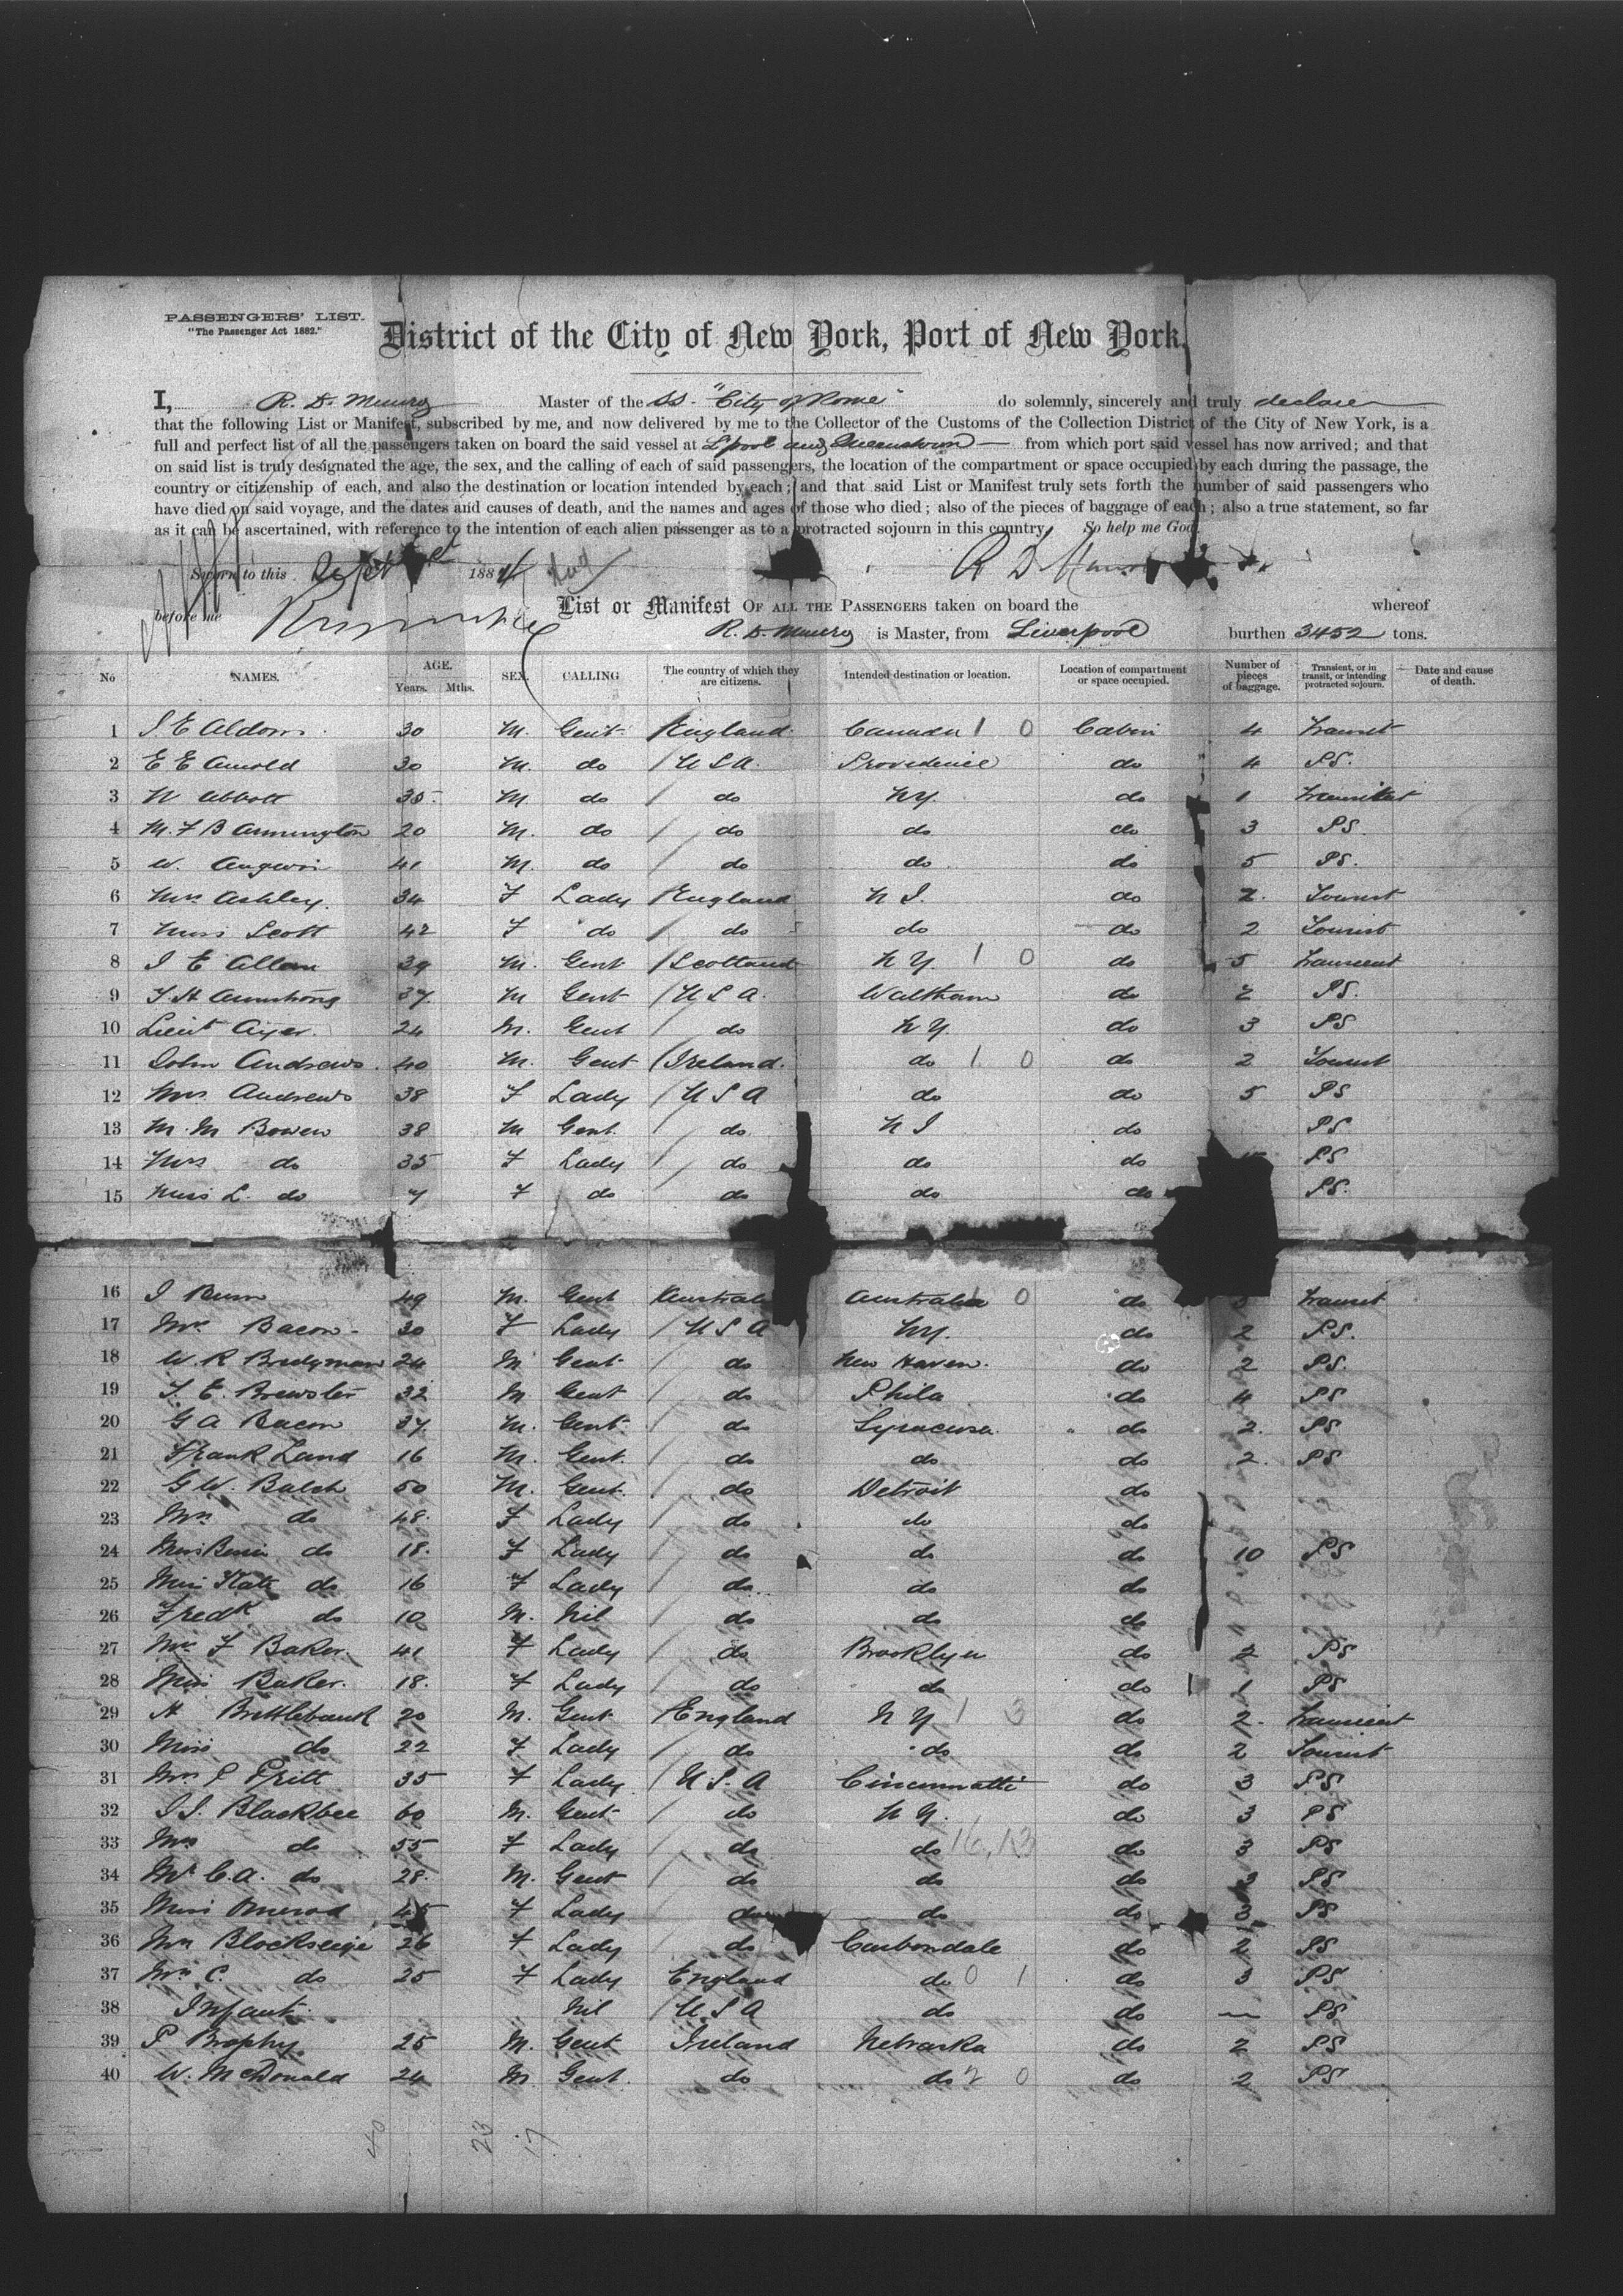 PASSENGERS' LIST.
"The Passenger Act 1882."
District of the City of New York, Port of New York.
I, R. D. Munro Master of the SS. "City of Rome" do solemnly, sincerely and truly declare
that the following List or Manifest, subscribed by me, and now delivered by me to the Collector of the Customs of the Collection District of the City of New York, is a
full and perfect list of all the passengers taken on board the said vessel at L'pool and Queenstown from which port said vessel has now arrived; and that
on said list is truly designated the age, the sex, and the calling of each of said passengers, the location of the compartment or space occupied by each during the passage, the
country or citizenship of each, and also the destination or location intended by each; and that said List or Manifest truly sets forth the number of said passengers who
have died on said voyage, and the dates and causes of death, and the names and ages of those who died; also of the pieces of baggage of each; also a true statement, so far
as it can be ascertained, with reference to the intention of each alien passenger as to a protracted sojourn in this country. So help me God.
Sworn to this Sept 1884 R D Munro
before me
List or Manifest OF ALL THE PASSENGERS taken on board the whereof
R. D. Munro is Master, from Liverpool burthen 3452 tons.
No NAMES. AGE. Years. Mths. SEX. CALLING The country of which they are citizens. Intended destination or location. Location of compartment or space occupied. Number of pieces of baggage. Transient, or in transit, or intending protracted sojourn. Date and cause of death.
1 J E Aldom 30 M. Gent England Canada 1 0 Cabin 4 Transit
2 E E Arnold 30 M. do U S A. Providence do 4 PS.
3 W Abbott 35. M do do NY. do 1
4 M. F B Armington 20 M. do do do do 3 PS.
5 W. Angwin 41 M. do do do do 5 PS.
6 Mrs Ashley. 34 F Lady England N J. do 2. Tourist
7 Miss Scott 42 F do do do do 2 Tourist
8 J E Allan 39 M. Gent Scotland N Y. 1 0 do 5 Transient
9 T H Armstrong 37 M Gent U S A. Waltham do 2 PS.
10 Lieut Ayer. 24 M. Gent do N Y. do 3 PS
11 John Andrews. 40 M. Gent Ireland. do 1 0 do 2 Tourist
12 Mrs. Andrews 38 F Lady U S A do do 5 PS
13 M. M Bowen 38 M Gent. do N J do PS
14 Mrs do 35 F Lady do do do PS
15 Miss L. do 7 F do do do do PS.
16 J Burn 49 M. Gent Australia Australia 0 do Transit
17 Mrs Bacon. 30 F Lady U S A NY. do 2 PS.
18 W. R Bridgman 24 M Gent. do New Haven. do 2 PS.
19 S. E. Brewster 32 M Gent do Phila do 4 PS
20 G A Bacon 37. M. Gent. do Syracuse. do 2. PS
21 Frank Land 16 M. Gent. do do do 2. PS
22 G W. Balch 50 M. Gent. do Detroit do
23 Mrs do 48. F Lady do do do
24 Miss Bessie do 18. F Lady do do do 10 PS
25 Miss Kate do 16 F Lady do do do
26 Fredk do 10 M. Nil do do do
27 Mrs F Baker. 41 F Lady do Brooklyn do 2 PS
28 Miss Baker. 18. F Lady do do do 1 PS
29 H Brittlebank 20 M. Gent England N Y 1 3 do 2. Transient
30 Miss do 22 F Lady do do do 2 Tourist
31 Mrs P Pritt 35 F Lady U S. A Cincinnatti do 3 PS
32 J J. Blackbee 60 M. Gent do N Y. do 3 PS
33 Mrs do 55 F Lady do do 16, 13 do 3 PS
34 Mr C. A. do 28. M. Gent do do do 3 PS
35 Miss Omerod 45 F Lady do do do 3 PS
36 Mrs 26 F Lady do Carbondale do 2 PS
37 Mrs C. do 25 F Lady England do 0 1 do 3 PS
38 Infant Nil U S A do do — PS
39 P Brophy 25 M. Gent Ireland Nebraska do 2 PS
40 W. McDonald 24 M. Gent. do do 2 0 do 2 PS
40 23 17